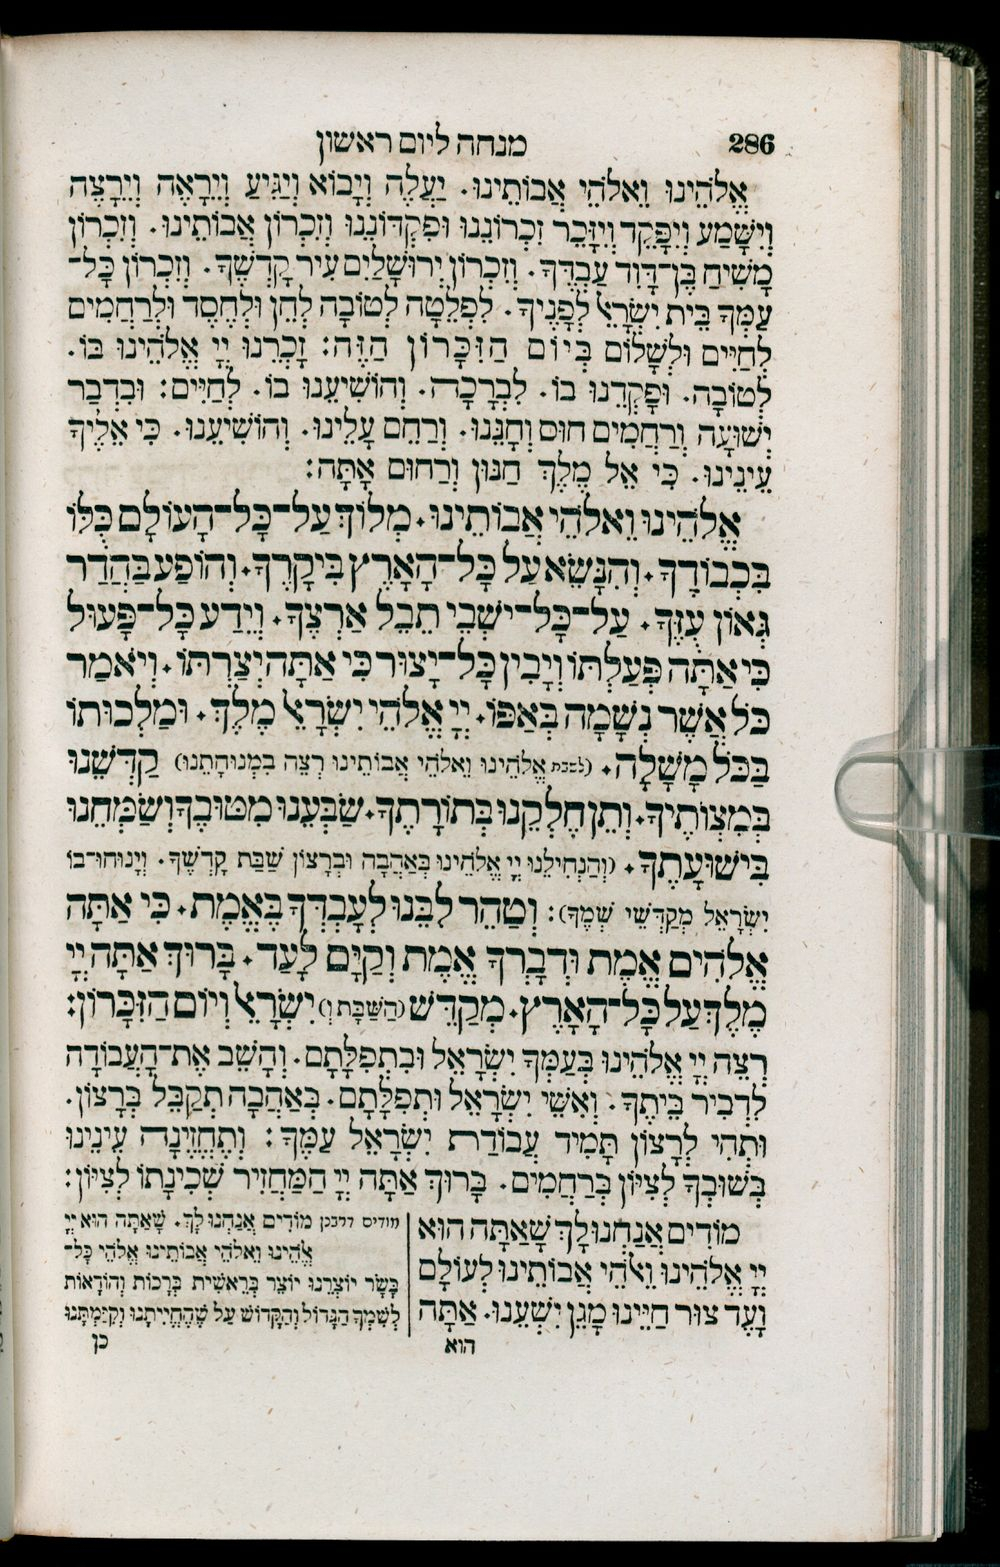 286 מנחה ליום ראשון
אֱלֹהֵינוּ וֵאלֹהֵי אֲבוֹתֵינוּ. יַעֲלֶה וְיָבוֹא וְיַגִּיעַ וְיֵרָאֶה וְיֵרָצֶה
וְיִשָּׁמַע וְיִפָּקֵד וְיִזָּכֵר זִכְרוֹנֵנוּ וּפִקְדוֹנֵנוּ וְזִכְרוֹן אֲבוֹתֵינוּ. וְזִכְרוֹן
מָשִׁיחַ בֶּן־דָּוִד עַבְדֶּךָ. וְזִכְרוֹן יְרוּשָׁלַיִם עִיר קָדְשֶׁךָ. וְזִכְרוֹן כָּל־
עַמְּךָ בֵּית יִשְׂרָאֵל לְפָנֶיךָ. לִפְלֵטָה לְטוֹבָה לְחֵן וּלְחֶסֶד וּלְרַחֲמִים
לְחַיִּים וּלְשָׁלוֹם בְּיוֹם הַזִּכָּרוֹן הַזֶּה: זָכְרֵנוּ יְיָ אֱלֹהֵינוּ בּוֹ.
לְטוֹבָה. וּפָקְדֵנוּ בוֹ. לִבְרָכָה. וְהוֹשִׁיעֵנוּ בוֹ. לְחַיִּים: וּבִדְבַר
יְשׁוּעָה וְרַחֲמִים חוּס וְחָנֵּנוּ. וְרַחֵם עָלֵינוּ. וְהוֹשִׁיעֵנוּ. כִּי אֵלֶיךָ
עֵינֵינוּ. כִּי אֵל מֶלֶךְ חַנּוּן וְרַחוּם אָתָּה:
אֱלֹהֵינוּ וֵאלֹהֵי אֲבוֹתֵינוּ. מְלוֹךְ עַל־כָּל־הָעוֹלָם כֻּלּוֹ
בִּכְבוֹדֶךָ. וְהִנָּשֵׂא עַל כָּל־הָאָרֶץ בִּיקָרֶךָ. וְהוֹפַע בַּהֲדַר
גְּאוֹן עֻזֶּךָ. עַל־כָּל־יֹשְׁבֵי תֵבֵל אַרְצֶךָ. וְיֵדַע כָּל־פָּעוּל
כִּי אַתָּה פְּעַלְתּוֹ וְיָבִין כָּל־יָצוּר כִּי אַתָּה יְצַרְתּוֹ. וְיֹאמַר
כֹּל אֲשֶׁר נְשָׁמָה בְּאַפּוֹ. יְיָ אֱלֹהֵי יִשְׂרָאֵל מֶלֶךְ. וּמַלְכוּתוֹ
בַּכֹּל מָשָׁלָה. (לשבת אֱלֹהֵינוּ וֵאלֹהֵי אֲבוֹתֵינוּ רְצֵה בִמְנוּחָתֵנוּ) קַדְּשֵׁנוּ
בְּמִצְוֹתֶיךָ. וְתֵן חֶלְקֵנוּ בְּתוֹרָתֶךָ. שַׂבְּעֵנוּ מִטּוּבֶךָ וְשַׂמְּחֵנוּ
בִּישׁוּעָתֶךָ. (וְהַנְחִילֵנוּ יְיָ אֱלֹהֵינוּ בְּאַהֲבָה וּבְרָצוֹן שַׁבַּת קָדְשֶׁךָ. וְיָנוּחוּ־בוֹ
יִשְׂרָאֵל מְקַדְּשֵׁי שְׁמֶךָ): וְטַהֵר לִבֵּנוּ לְעָבְדְּךָ בֶּאֱמֶת. כִּי אַתָּה
אֱלֹהִים אֱמֶת וּדְבָרְךָ אֱמֶת וְקַיָּם לָעַד. בָּרוּךְ אַתָּה יְיָ
מֶלֶךְ עַל כָּל־הָאָרֶץ. מְקַדֵּשׁ (הַשַּׁבָּת וְ) יִשְׂרָאֵל וְיוֹם הַזִּכָּרוֹן:
רְצֵה יְיָ אֱלֹהֵינוּ בְּעַמְּךָ יִשְׂרָאֵל וּבִתְפִלָּתָם. וְהָשֵׁב אֶת־הָעֲבוֹדָה
לִדְבִיר בֵּיתֶךָ. וְאִשֵּׁי יִשְׂרָאֵל וּתְפִלָּתָם. בְּאַהֲבָה תְקַבֵּל בְּרָצוֹן.
וּתְהִי לְרָצוֹן תָּמִיד עֲבוֹדַת יִשְׂרָאֵל עַמֶּךָ: וְתֶחֱזֶינָה עֵינֵינוּ
בְּשׁוּבְךָ לְצִיּוֹן בְּרַחֲמִים. בָּרוּךְ אַתָּה יְיָ הַמַּחֲזִיר שְׁכִינָתוֹ לְצִיּוֹן:
מוֹדִים אֲנַחְנוּ לָךְ שָׁאַתָּה הוּא
יְיָ אֱלֹהֵינוּ וֵאלֹהֵי אֲבוֹתֵינוּ לְעוֹלָם
וָעֶד צוּר חַיֵּינוּ מָגֵן יִשְׁעֵנוּ. אַתָּה
הוא
מודים דרבנן מוֹדִים אֲנַחְנוּ לָךְ. שָׁאַתָּה הוּא יְיָ
אֱלֹהֵינוּ וֵאלֹהֵי אֲבוֹתֵינוּ אֱלֹהֵי כָל־
בָּשָׂר יוֹצְרֵנוּ יוֹצֵר בְּרֵאשִׁית בְּרָכוֹת וְהוֹדָאוֹת
לְשִׁמְךָ הַגָּדוֹל וְהַקָּדוֹשׁ עַל שֶׁהֶחֱיִיתָנוּ וְקִיַּמְתָּנוּ
כן